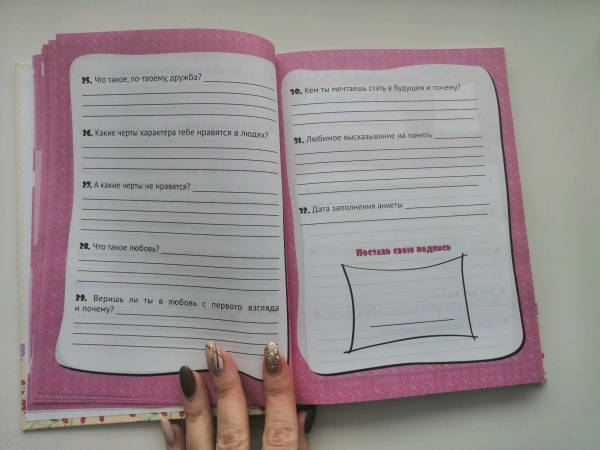 25. Что такое, по-твоему, дружба?
26. Какие черты характера тебе нравятся в людях?
27. А какие черты не нравятся?
28. Что такое любовь?
29. Веришь ли ты в любовь с первого взгляда
и почему?
30. Кем ты мечтаешь стать в будущем и почему?
31. Любимое высказывание на память
32. Дата заполнения анкеты
Поставь свою подпись